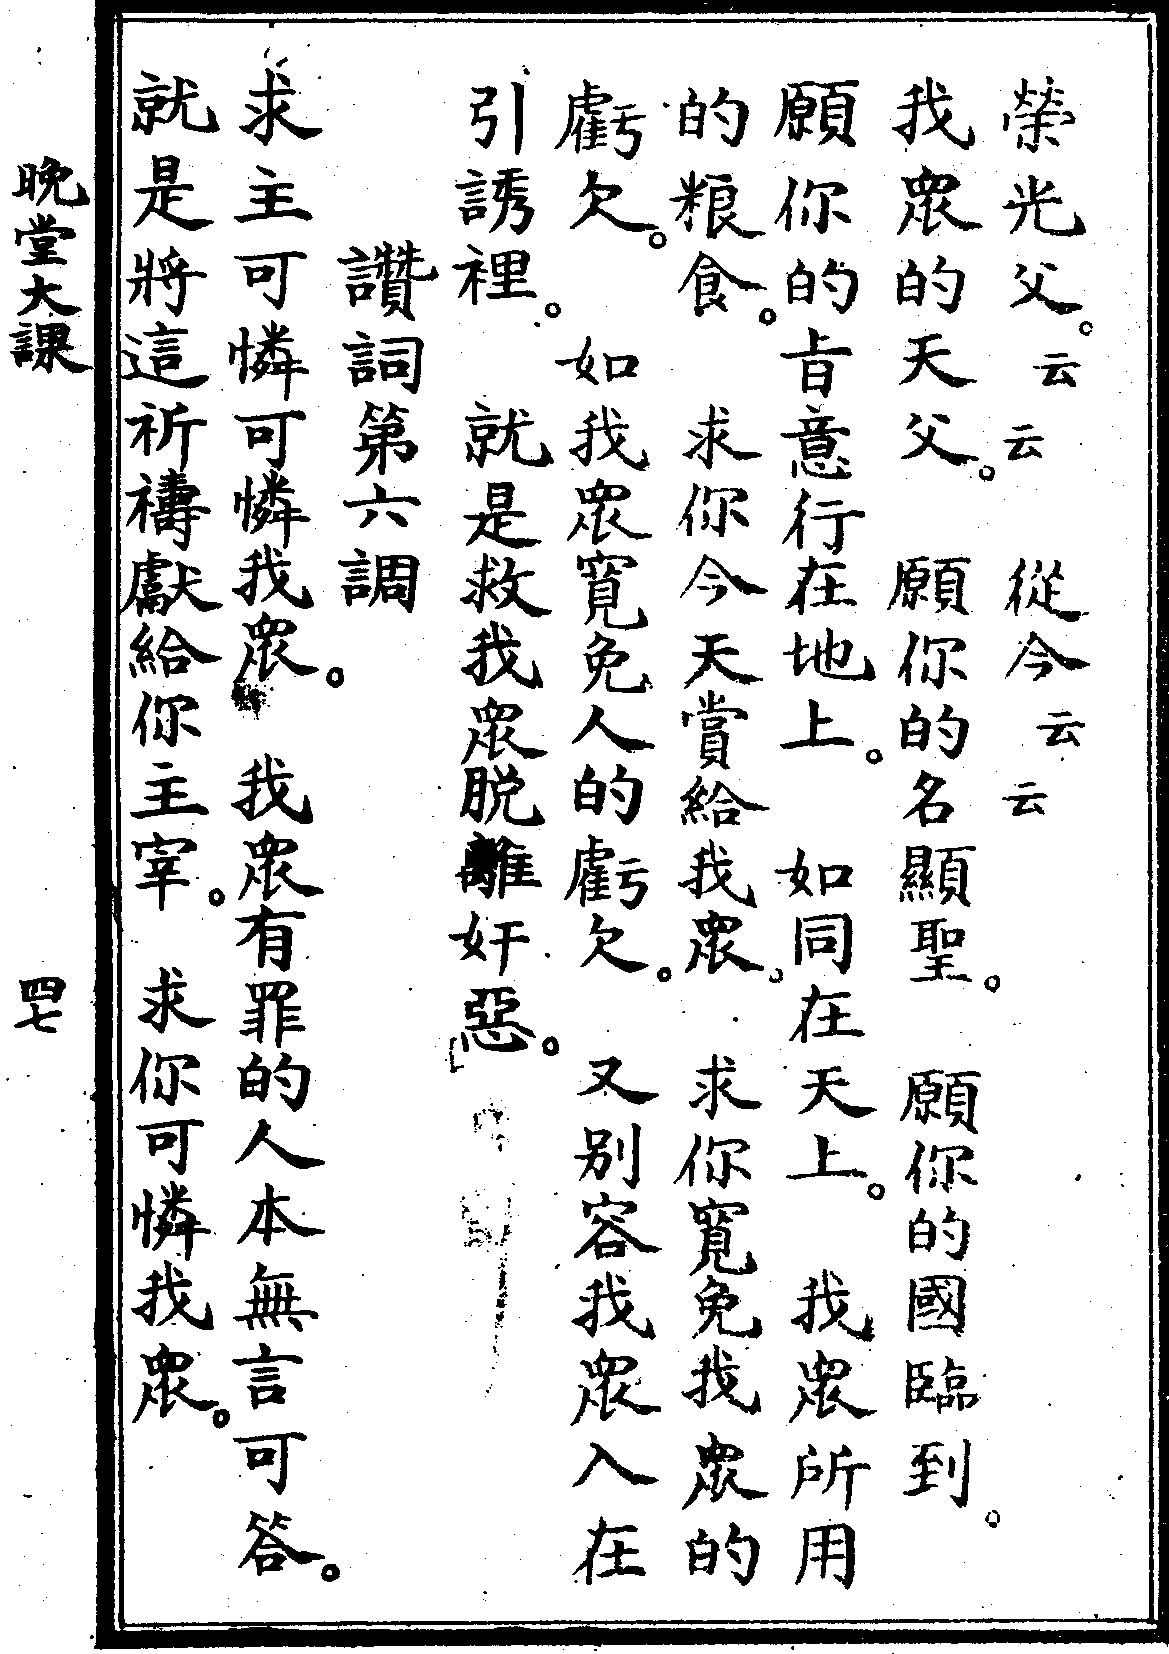 榮光父。云云 從今云云
我眾的天父。 願你的名顯聖。 願你的國臨到。
願你的旨意行在地上。 如同在天上。 我眾所用
的粮食。 求你今天賞給我眾。 求你寬免我眾的
虧欠。 如我眾寬免人的虧欠。 又别容我眾入在
引誘裡。 就是救我眾脱離奸惡。
讚詞第六調
求主可憐可憐我眾。 我眾有罪的人本無言可答。
就是將這祈禱獻給你主宰。 求你可憐我眾。
晚堂大課 四七